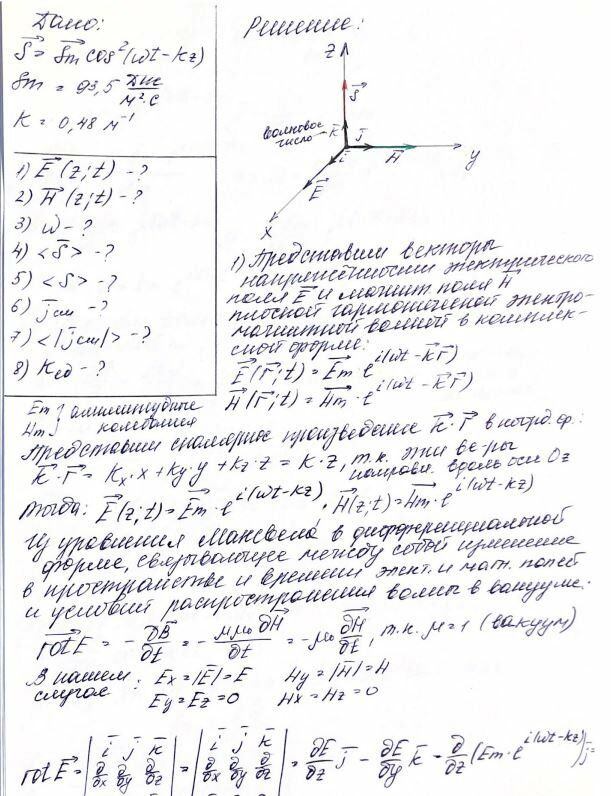 Дано:
S⃗ = S⃗m cos²(ωt − kz)
Sm = 93,5 Дж/м²·с
K = 0,48 м⁻¹
1) E⃗ (z; t) − ?
2) H⃗ (z; t) − ?
3) ω − ?
4) <S⃗> − ?
5) <S> − ?
6) j̅см − ?
7) <|j̅см|> − ?
8) Kед − ?
Решение:
Z
S⃗
волновое
число
k̅ j̅
i̅
H̅
y
E̅
x
1) Представим векторы
напряжённости электрического
поля E⃗ и магнит поля H⃗
плоской гармонической электро-
магнитной волной в комплек-
сной форме:
E⃗(r⃗; t) = E⃗m · e^i(ωt − k⃗r⃗)
H⃗(r⃗; t) = H⃗m · e^i(ωt − k⃗r⃗)
Em } амплитудные
Hm } колебания
Представим скалярное произведение k⃗·r⃗ в коорд. ф.:
k⃗·r⃗ = Kx·x + Ky·y + Kz·z = K·z, т.к. эти ве-ры
направл. вдоль оси Oz
тогда: E⃗(z; t) = E⃗m · e^i(ωt−kz), H⃗(z; t) = H⃗m · e^i(ωt−kz)
Из уравнения Максвела в дифференциальной
форме, связывающее между собой изменение
в пространстве и времени элект. и маг. полей
и условий распространения волны в вакууме:
rotE⃗ = − ∂B⃗/∂t = − μμ₀∂H⃗/∂t = −μ₀ ∂H⃗/∂t, т.к. μ=1 (вакуум)
В нашем случае: Ex = |E̅| = E Hy = |H̅| = H
Ey = Ez = 0 Hx = Hz = 0
rot E⃗ = | i̅ j̅ k̅ ∂/∂x ∂/∂y ∂/∂z | = | i̅ j̅ k̅ ∂/∂x ∂/∂y ∂/∂z | = ∂E/∂z j̅ − ∂E/∂y k̅ = ∂/∂z (Em · e^i(ωt−kz)) j̅ =